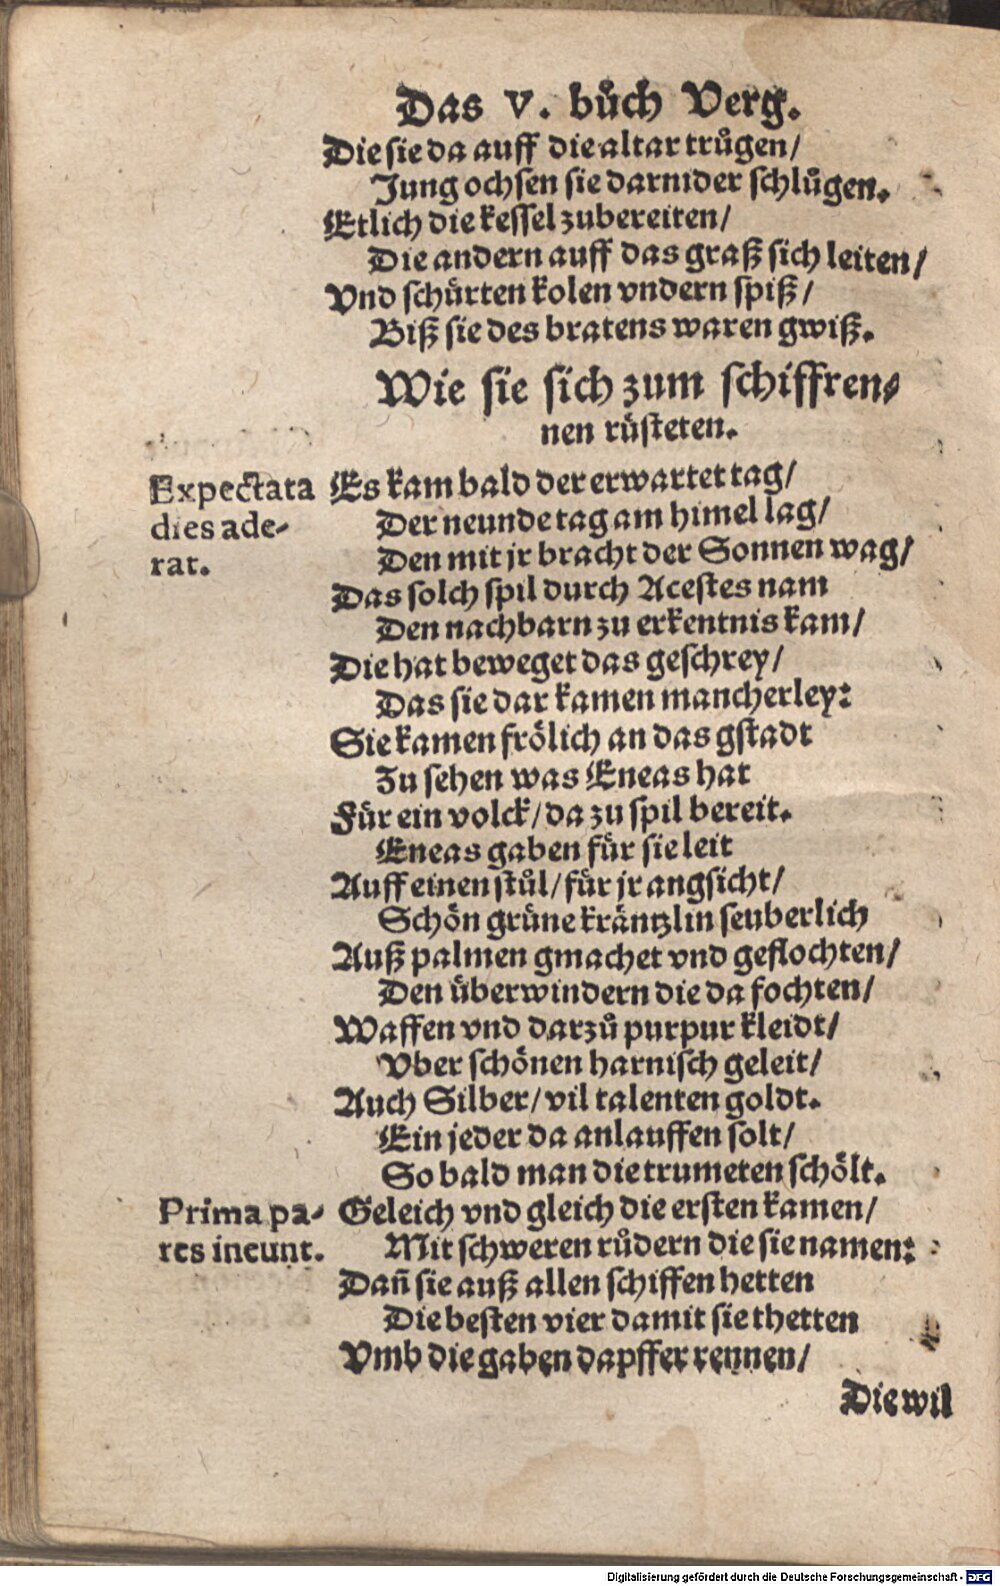 Das V. bůch Verg.
Die sie da auff die altar trůgen/
Jung ochsen sie darnider schlůgen.
Etlich die kessel zubereiten/
Die andern auff das graß sich leiten/
Vnd schürten kolen vndern spiß/
Biß sie des bratens waren gwiß.
Wie sie sich zum schiffren⸗
nen rüsteten.
Expectata
dies ade-
rat.
Es kam bald der erwartet tag/
Der neunde tag am himel lag/
Den mit jr bracht der Sonnen wag/
Das solch spil durch Acestes nam
Den nachbarn zu erkentnis kam/
Die hat beweget das geschrey/
Das sie dar kamen mancherley:
Sie kamen frölich an das gstadt
Zu sehen was Eneas hat
Für ein volck/ da zu spil bereit.
Eneas gaben für sie leit
Auff einen stůl/ für jr angsicht/
Schön grüne kräntzlin seuberlich
Auß palmen gmachet vnd geflochten/
Den überwindern die da fochten/
Waffen vnd darzů purpur kleidt/
Vber schönen harnisch geleit/
Auch Silber/ vil talenten goldt.
Ein jeder da anlauffen solt/
So bald man die trumeten schölt.
Prima pa-
res ineunt.
Geleich vnd gleich die ersten kamen/
Mit schweren růdern die sie namen:
Dañ sie auß allen schiffen hetten
Die besten vier damit sie thetten
Vmb die gaben dapffer rennen/
Die wil
Digitalisierung gefördert durch die Deutsche Forschungsgemeinschaft - DFG